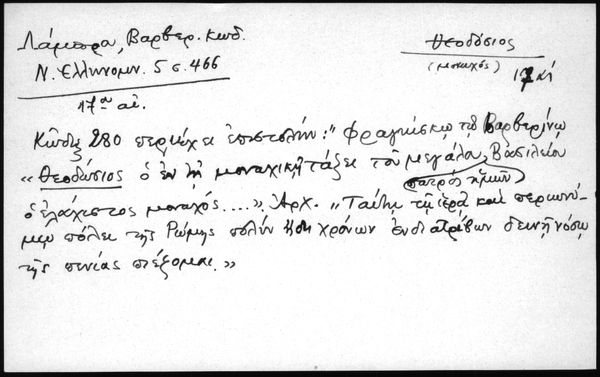 Λάμπρου, Βαρβερ. κωδ.
Ν. Ελληνομν. 5 σ. 466
17ου αι.
Θεοδόσιος
(μοναχός)
17 αι
Κῶδιξ 280 περιέχει ἐπιστολήν: "Φραγκίσκῳ τῷ Βαρβερίνῳ
« Θεοδόσιος ὁ ἐν τῇ μοναχικῇ τάξει τοῦ μεγάλου Βασιλείου
πατρὸς ἡμῶν
ὁ ἐλάχιστος μοναχός....». Ἀρχ. "Ταύτῃ τῇ ἱερᾷ καὶ περιωνύ-
μῳ πόλει τῆς Ρώμης πολὺν ἤδη χρόνον ἐνδιατρίβων δεινῇ νόσῳ
τῆς πενίας πιέζομαι.»